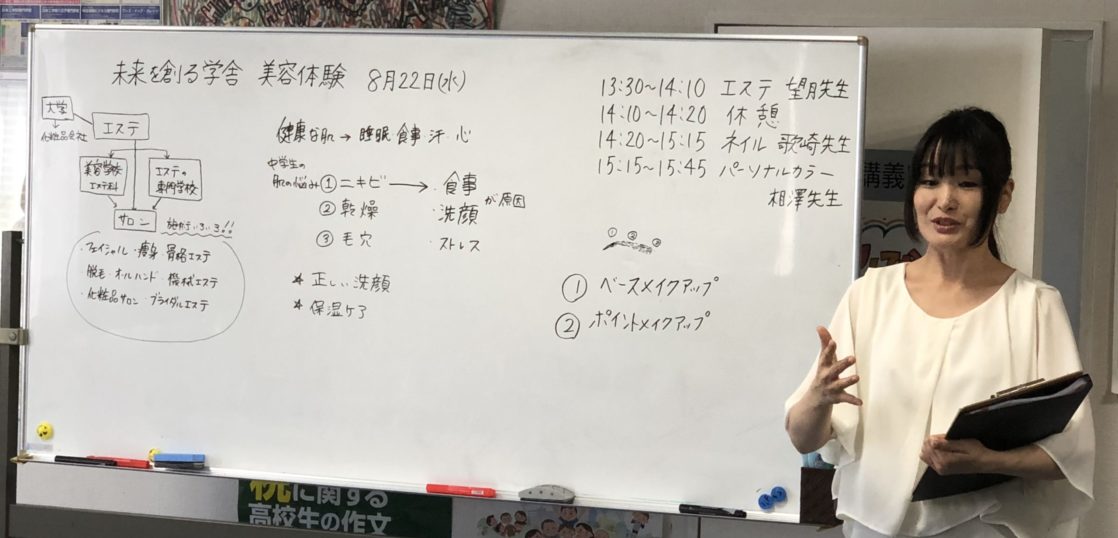 未来を創る学舎 美容体験 8月22日(水)
大学
化粧品会社
エステ
美容学校
エステ科
エステの
専門学校
サロン
・フェイシャル・痩身・骨格エステ
脱毛・オールハンド・機械エステ
・化粧品サロン・ブライダルエステ
健康な肌→睡眠 食事 汗 心
中学生の
肌の悩み ①ニキビ → ・食事
②乾燥 ・洗顔 が原因
③毛穴 ・ストレス
* 正しい洗顔
* 保湿ケア
13:30~14:10 エステ 望月先生
14:10~14:20 休憩
14:20~15:15 ネイル 歌崎先生
15:15~15:45 パーソナルカラー
相澤先生
① ② ③
① ベースメイクアップ
② ポイントメイクアップ
講義
税に関する
高校生の作文